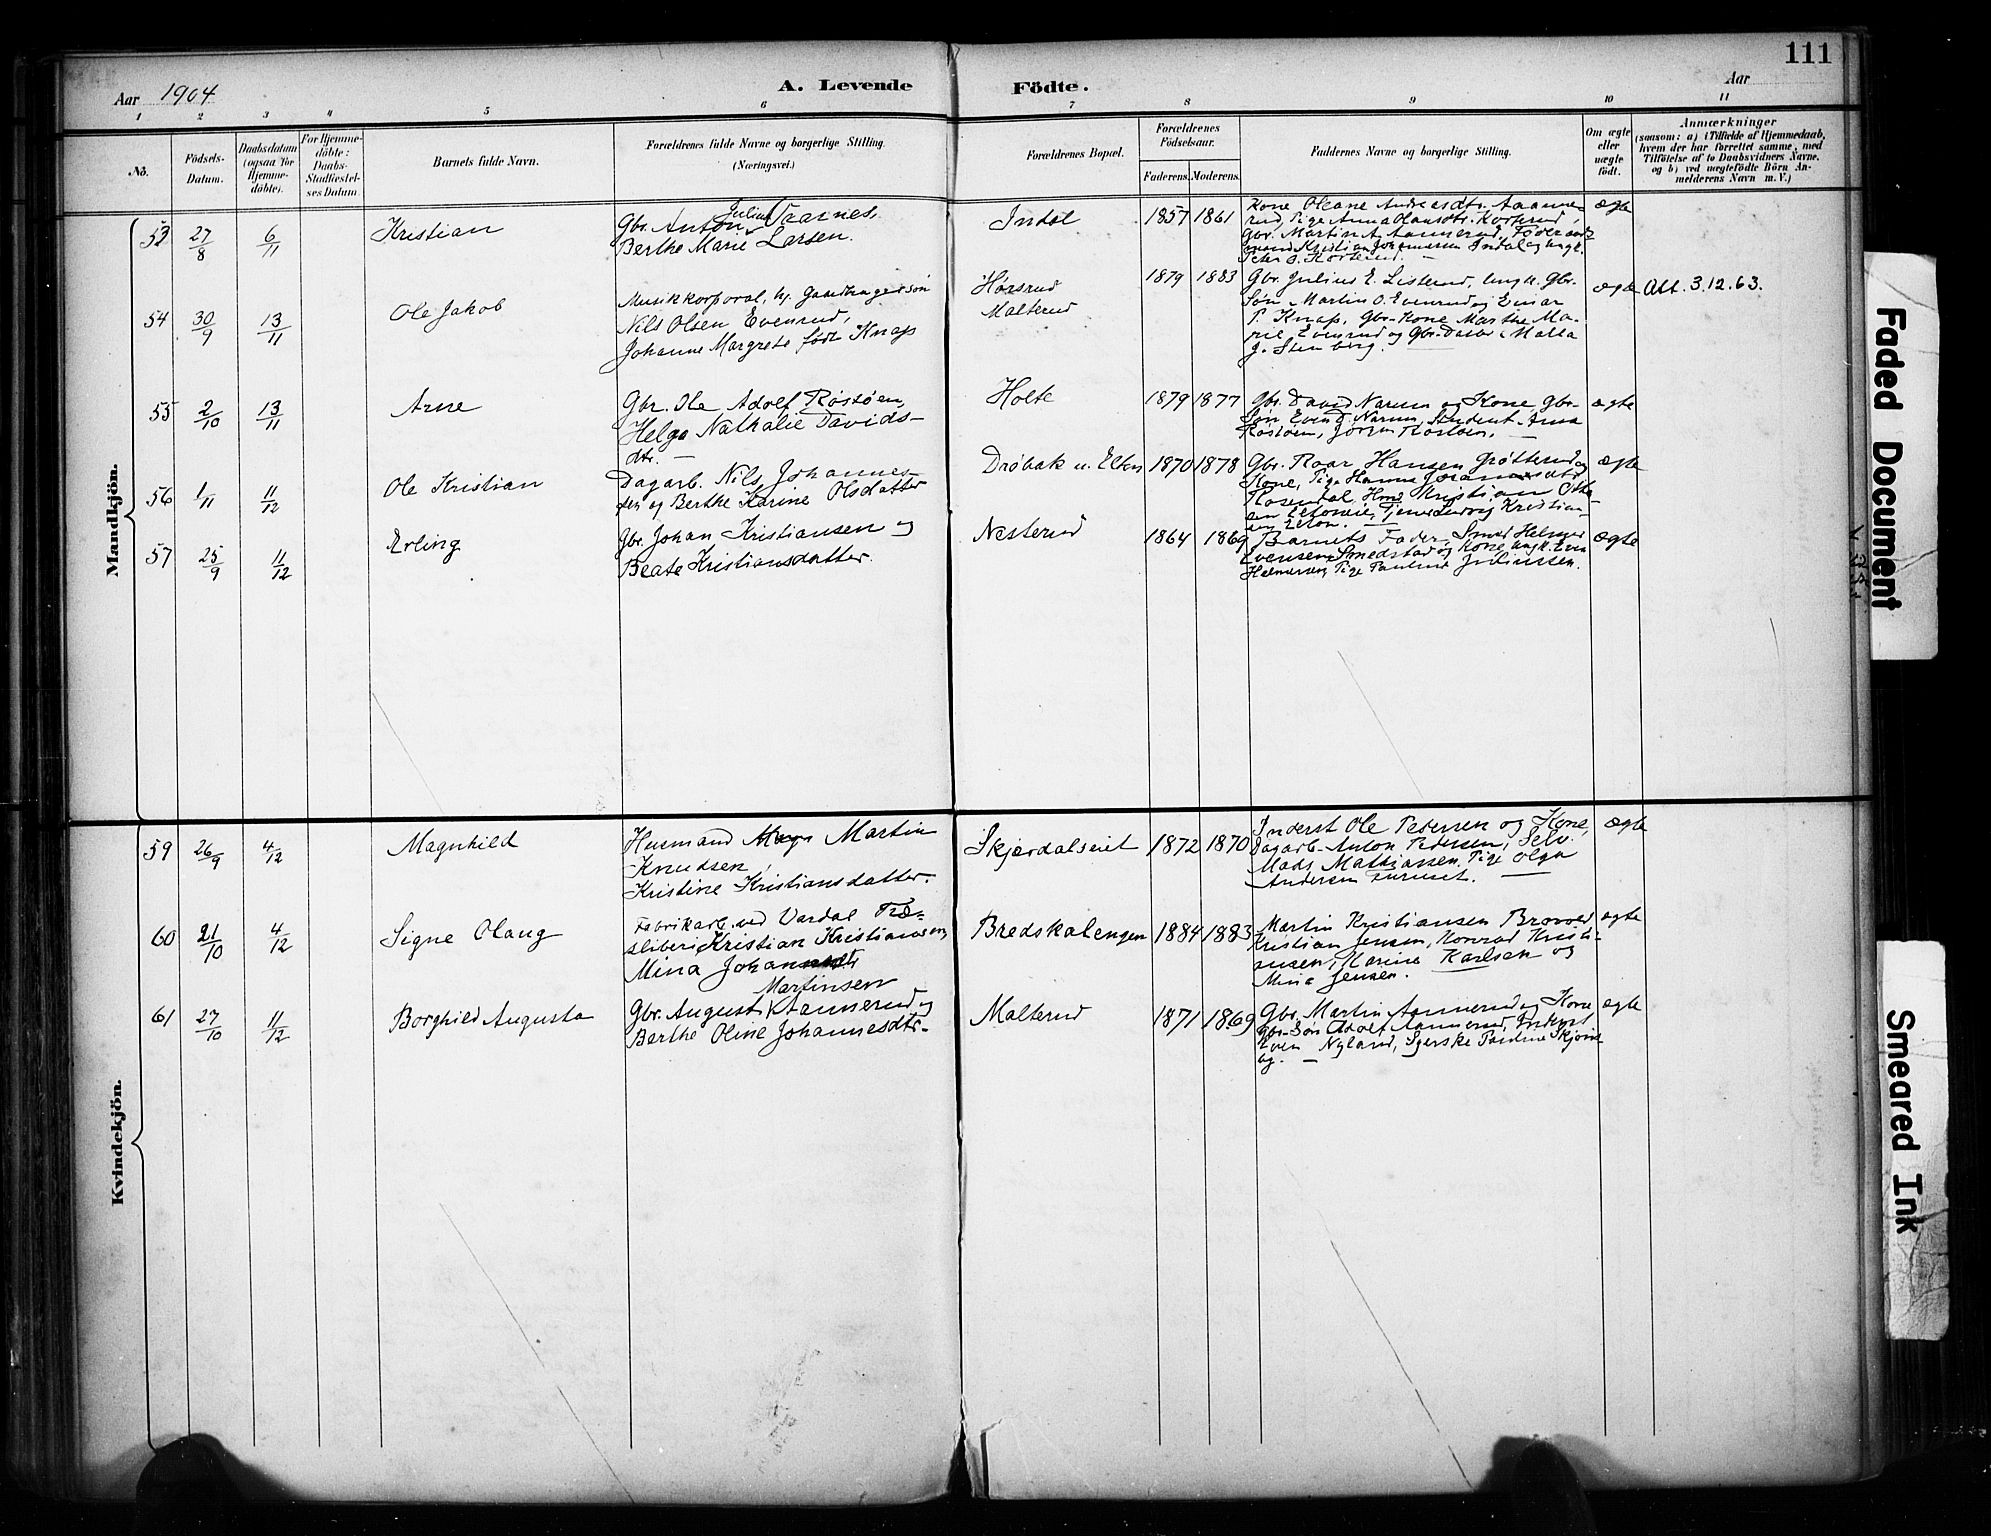 111
Aar 1904
A. Levende Födte.
Aar
1 2 3 4 5 6 7 8 9 10 11
No.
Födsels-Datum.
Daabsdatum (ogsaa for Hjemme-döbte).
For Hjemme-döbte: Daabs-Stadfæstel-ses Datum.
Barnets fulde Navn.
Forældrenes fulde Navne og borgerlige Stilling. (Næringsvei.)
Forældrenes Bopæl.
Forældrenes Födselsaar.
Faderens. Moderens.
Faddernes Navne og borgerlige Stilling.
Om ægte eller uægte födt.
Anmærkninger
(saasom: a) i Tilfælde af Hjemmedaab,
hvem der har forrettet samme, med
Tilföielse af to Daabsvidners Navne,
og b) ved uægtefödte Börn An-
melderens Navn m. V.)
Mandkjön.
53 27/8 6/11 Kristian
Gbr. Anton Julius Vaarnes,
Berthe Marie Larsen.
Indal 1857 1861
Kone Oleane Andreasdtr. Aanne-
rud, Pige Anna Olausdtr. Korterud,
Gbr. Martin A. Aannerud, Föderaads-
mand Kristian Johannessen Indal og Ungk.
Peter O. Korterud.
ægte
54 30/9 13/11 Ole Jakob
Musikkorporal, hj. Gaardbrugersøn
Nils Olsen Evenrud,
Johanne Margrete født Knap
Hørsrud
Malterud
1879 1883
Gbr. Julius E. Listerud, Ungk. Gbr.
Søn Martin O. Evenrud og Einar
P. Knap, Gbr.-Kone Marthe Ma-
rie Evenrud og Gbr-Datter Malla
J. Stenberg.
ægte Att. 3.12.63.
55 2/10 13/11 Arne
Gbr. Ole Adolf Røstøen,
Helga Nathalie Davids-
dtr.
Holte 1879 1877
Gbr. David Narum og Kone, Gbr-
Søn Evind Narum, Student Arna
Røstøen, Jørgen Røstøen.
ægte
56 1/11 11/12 Ole Kristian
Dagarb. Nils Johannes-
sen og Berthe Karine Olsdatter
Drøbak u. Elton 1870 1878
Gbr. Roar Hansen Grøtterud og
Kone, Pige Hanna
Rosendal, Hmd Kristian Otte-
sen Eltoneie, Tjener Ludvig Kristian-
sen Elton.
ægte
57 25/9 11/12 Erling
Gbr. Johan Kristiansen og
Beate Kristiansdatter.
Nesterud 1864 1869
Barnets Fader, Smed Helmer
Evensen Smedstad og Kone, Ungk. Even
Helmersen, Pige Pauline Juliussen.
ægte
Kvindekjön.
59 26/9 4/12 Magnhild
Husmand Martin
Knudsen,
Kristine Kristiansdatter.
Skjerdalseiet 1872 1870
Inderst Ole Pedersen og Kone,
Dagarb. Anton Pedersen, Selv.
Mads Mathiassen, Pige Olga
Andersen Furuset.
ægte
60 21/10 4/12 Signe Olaug
Fabrikarb. ved Vardal Træ-
sliberi Kristian Kristiansen,
Mina
Martinsen
Bredskalengen 1884 1883
Martin Kristiansen Brovold
Kristian Jensen, Konrad Kristi-
ansen, Karine Karlsen og
Mina Jensen.
ægte
61 27/10 11/12 Borghild Augusta
Gbr. August Aannerud og
Berthe Oline Johannesdtr.
Malterud 1871 1869
Gbr. Martin Aannerud og Kone
Gbr-Søn Adolf Aannerud, Inderst
Even Nyland, Syerske Pauline Skjøns-
by.
ægte
Faded Document
Smeared Ink